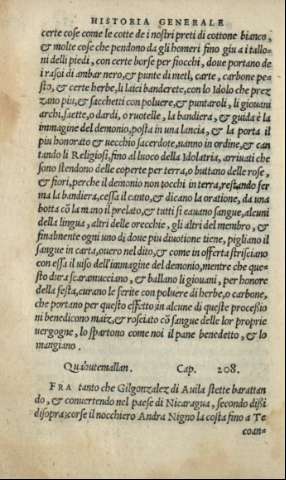 HISTORIA GENERALE
certe cose come le cotte de i nostri preti di cottone bianco,
& molte cose che pendono da gli homeri fino giu a i tallo-
ni delli piedi, con certe borse per fiocchi, doue portano de
i rasoi di ambar nero, & punte di metl, carte, carbone pe-
sto, & certe herbe, li laici banderete, con lo Idolo che prez
zano piu, & sacchetti con poluere, & puntaroli, li giouani
archi, saette, o dardi, o ruotelle, la bandiera, & guida è la
immagine del demonio, posta in una lancia, & la porta il
piu honorato & uecchio sacerdote, uanno in ordine, & can
tando li Religiosi, fino al luoco della Idolatria, arriuati che
sono stendono delle coperte per terra, o buttano delle rose,
& fiori, perche il demonio non tocchi in terra, restando fer
ma la bandiera, cessa il canto, & dicano la oratione, da una
botta cō la mano il prelato, & tutti si cauano sangue, alcuni
della lingua, altri delle orecchie, gli altri del menbro, &
finalmente ogni uno di doue piu diuotione tiene, pigliano il
sangue in carta, ouero nel dito, & come in offerta strisciano
con essa il uiso dell'immagine del demonio, mentre che que-
sto dura scaramucciano, & ballano li giouani, per honore
della festa, curano le ferite con poluere di herbe, o carbone,
che portano per questo effetto in alcune di queste processio
ni benedicono maiz, & rosciato cō sangue delle lor proprie
uergogne, lo spartono come noi il pane benedetto, & lo
mangiano.
Quahutemallan. Cap. 208.
FRA tanto che Gilgonzalez di Auila stette barattan
do, & conuertendo nel paese di Nicaragua, secondo dissi
disopra; corse il nocchiero Andra Nigno la costa fino a Te
coan-